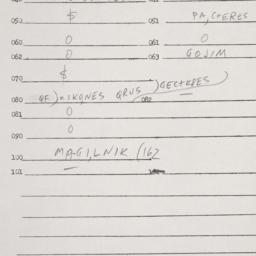 050 $ 051 PA,CTERES
060 0 061 0
062 0 063 GOJIM
070 $
080 GF)=IKONES GRUS)GECTKEES 082
081 0
0
090
100 MAGILNIK (162
101